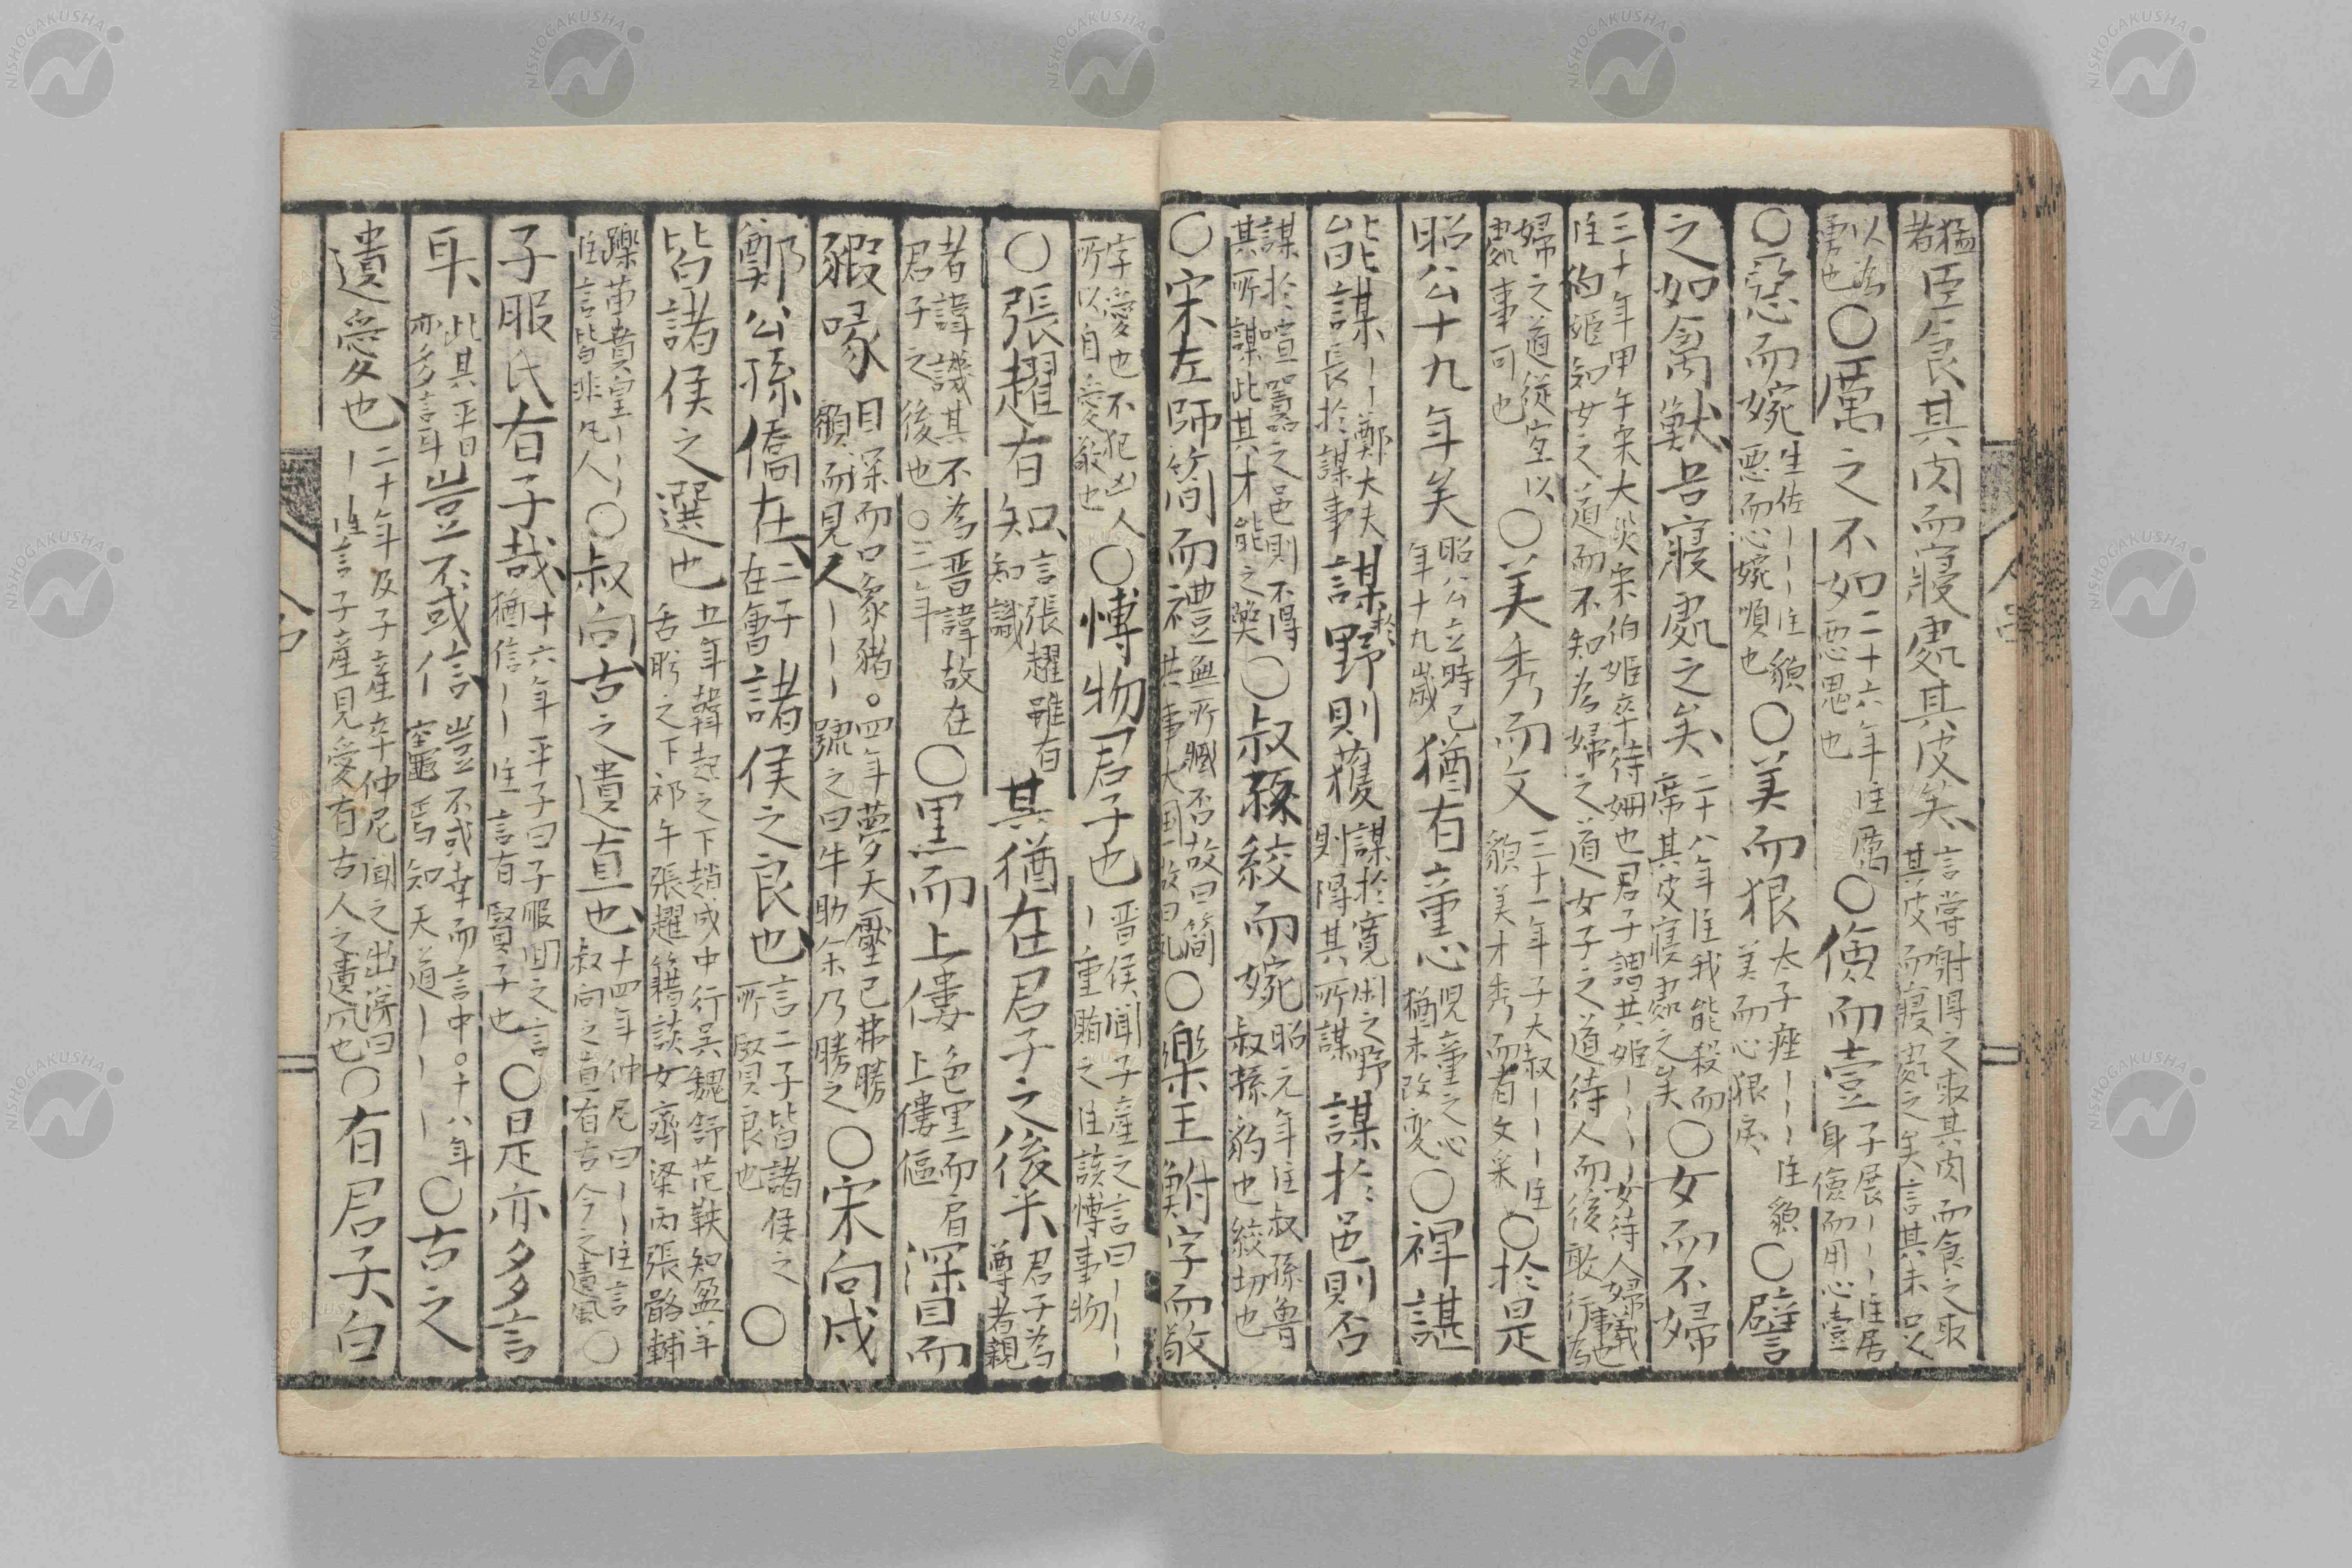 猛者臣食其肉而寢處其皮矣言嘗射得之取其肉而食之取其皮而寢處之矣言其未足
以為勇也〇厲之不如二十六年注厲惡思也〇儉而壹子展ーーー注居身儉而用心壹
〇惡而婉生佐ーーー注貌惡而心婉順也〇美而狠太子痤ーーー注貌美而心狠戾〇譬
之如禽獸吾寢處之矣二十八年注我能殺而席其皮寢處之矣〇女而不婦
三十年甲午宋大災宋伯姬卒待姆也君子謂共姬ーーー女待人婦義事也注伯姬知女之道而不知為婦之道女子之道待人而後敢行為
婦之道從宜以處事可也〇美秀而文三十一年子大叔ーーー注貌美才秀而有文采〇於是
昭公十九年矣昭公立時已年十九歲猶有童心児童之心猶未改変〇裨諶
能謀ーー鄭大夫皆長於謀事謀於野則獲謀於寬閑之野則得其所謀謀於邑則否
謀於喧囂之邑則不得其所謀此其才能之獘〇叔孫絞而婉昭元年注叔孫魯叔孫豹也絞切也
〇宋左師簡而禮無所臧否故曰簡共事大国故曰礼〇樂王鮒字而敬
字愛也不犯凶人所以自愛敬也〇愽物君子也晋侯聞子產之言曰ーーーー重賄之注該愽事物
〇張趯有知言張趯雖有知識其猶在君子之後乎君子為尊者親
者諱譏其不為晋諱故在君子之後也〇三年〇黒而上僂色黒而肩上僂傴深目而
豭喙目深而口象豬。四年夢天壓己弗勝顧而見人ーーー號之曰牛助余乃勝之〇宋向戌
鄭公孫僑在二子在會諸侯之良也言二子皆諸侯之所賢良也〇
皆諸侯之選也五年韓起之下趙成中行吳魏舒范鞅知盈羊舌肸之下祁午張趯籍談女齊梁丙張骼輔
躒苗賁皇ーー注言皆非凡人〇叔向古之遺直也十四年仲尼曰ーー注言叔向之直有古今之遺風〇
子服氏有子哉十六年平子曰子服囬之言猶信ーー注言有賢子也〇是亦多言
耳此其平日亦多言耳豈不或信豈不或幸而言中。十八年ー竈焉知天道ーーー〇古之
遺愛也二十年及子產卒仲尼聞之出涕曰ーー注言子產見愛有古人之遺風也〇有君子白